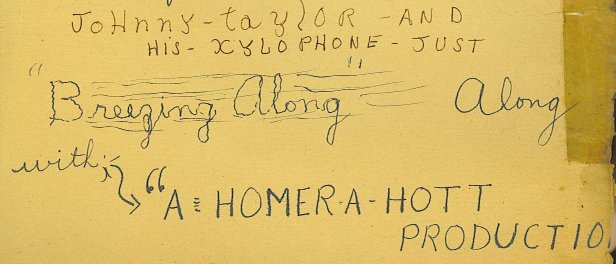 JoHnny-taylOR-AND
HIS-XYLOPHONE-JUST
"Breezing Along" Along
with;
"A = HOMER-A-HOTT
PRODUCTIO